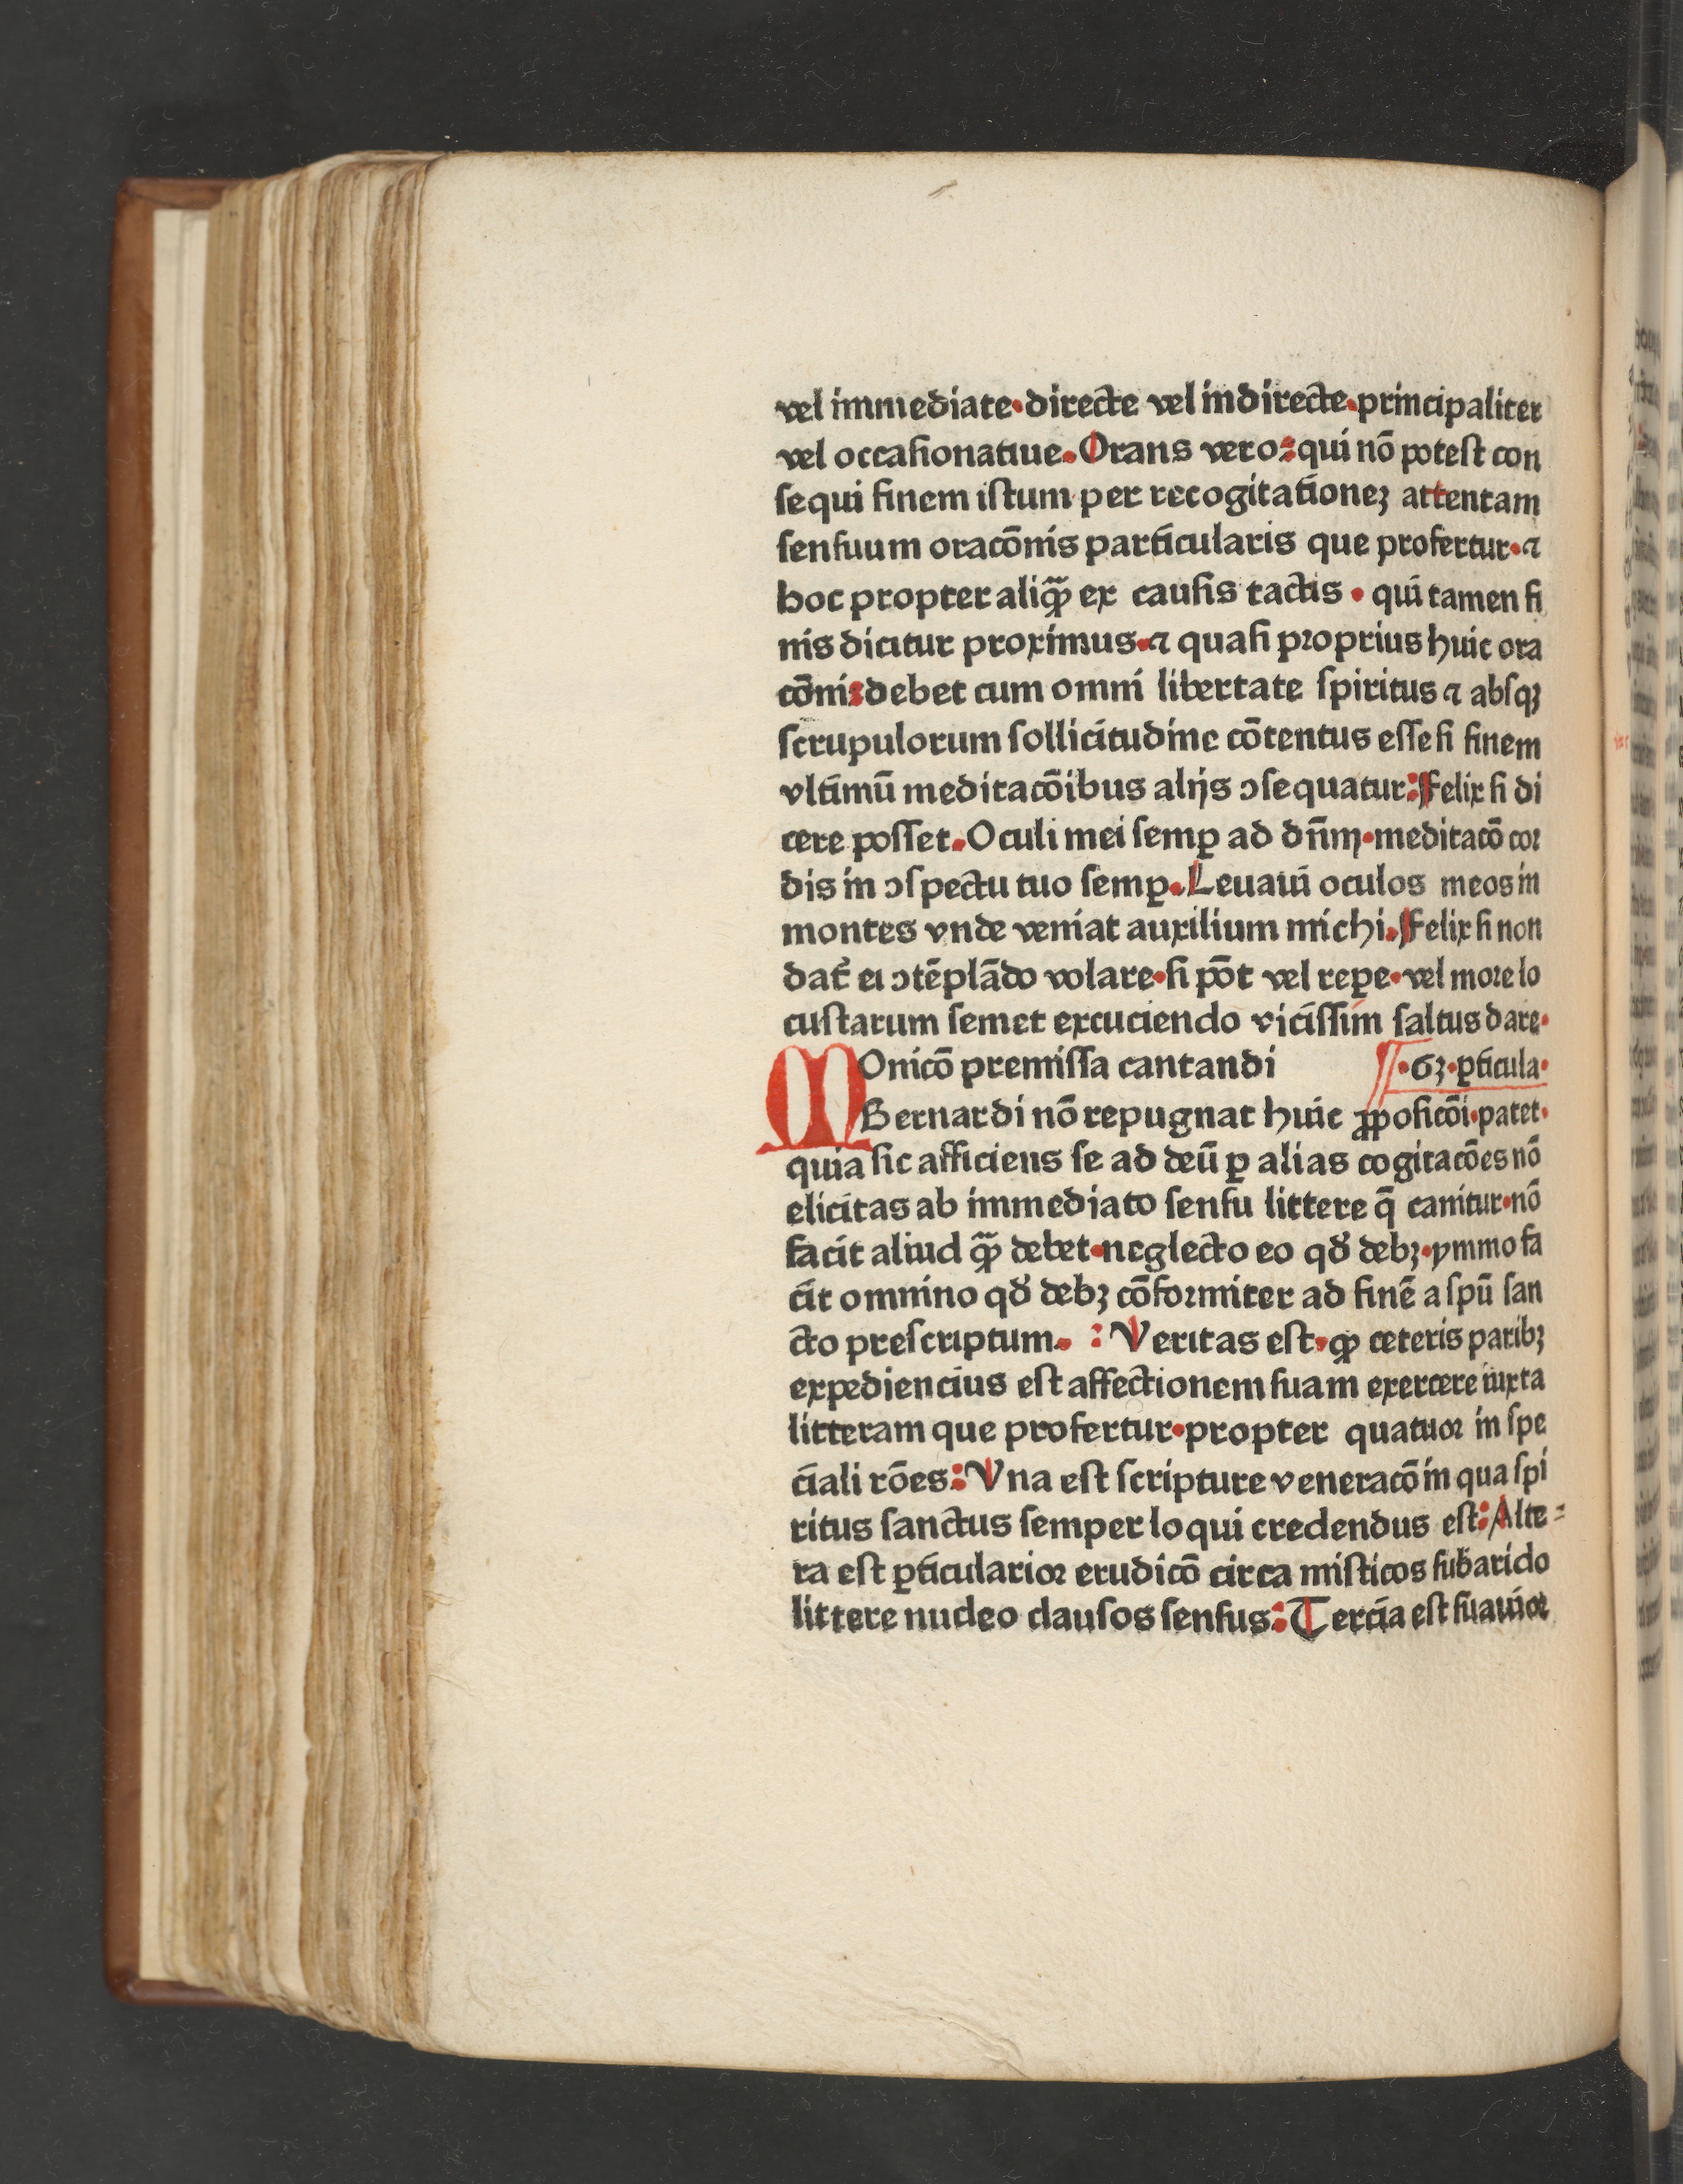 vel immediate·directe vel indirecte·principaliter
vel occaſionatiue.Orans vero:qui nō poteſt con
ſequi finem iſtum per recogitationeꝫ attentam
ſenſuum oracōnis particularis que profertur·⁊
hoc propter aliꝙ̃ ex cauſis tactis · qui tamen fi
nis dicitur proximus·⁊ quaſi proprius huic ora
cōni:debet cum omni libertate ſpiritus ⁊ abſqꝫ
ſcrupulorum ſollicitudine cōtentus eſſe ſi finem
vltimū meditacōibus alijs ↄſequatur:Felix ſi di
cere poſſet.Oculi mei ſemꝑ ad dn̄m·meditacō cor
dis in ↄſpectu tuo ſemꝑ.Leuaui oculos meos in
montes vnde veniat auxilium michi.Felix ſi non
dat᷑ ei ↄtēplādo volare·ſi pōt vel reꝑe·vel more lo
cuſtarum ſemet excuciendo viciſſim ſaltus dare·
MOnicō premiſſa cantandi ·6ꝫ·ꝑticula·
Bernardi nō repugnat huic ꝓpoſicōi·patet·
quia ſic afficiens ſe ad deū ꝑ alias cogitacōes nō
elicitas ab immediato ſenſu littere q̄ canitur·nō
facit aliud ꝙ̃ debet·neglecto eo qd̓ debꝫ·ymmo fa
cit omnino qd̓ debꝫ cōformiter ad finē a ſpū ſan
cto preſcriptum. :Veritas eſt·ꝙ ceteris paribꝫ
expediencius eſt affectionem ſuam exercere iuxta
litteram que profertur·propter quatuor in ſpe
ciali rōes:Vna eſt ſcripture veneracō in qua ſpi
ritus ſanctus ſemper loqui credendus eſt:Alte⸗
ra eſt ꝑticularior erudicō circa miſticos ſub arido
littere nucleo clauſos ſenſus:Tercia eſt ſuauior